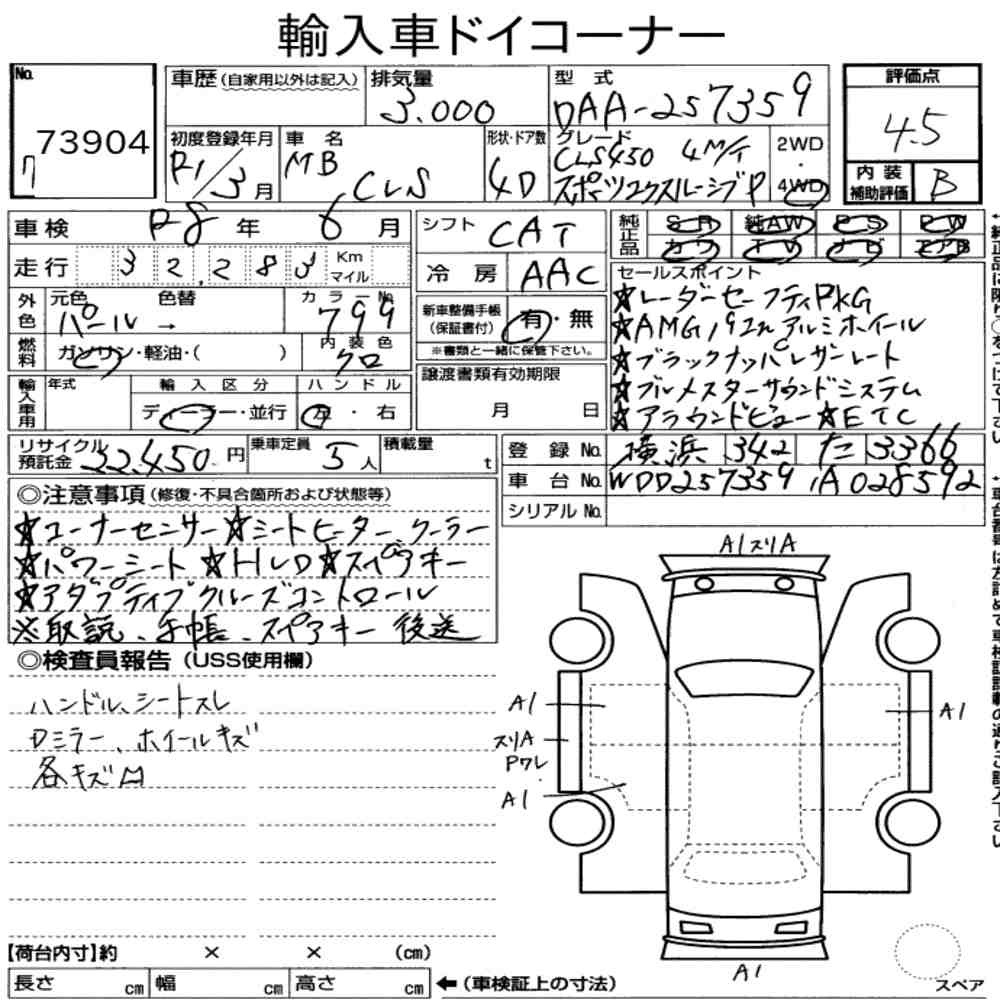 輸入車ドイコーナー
No. 73904
車歴 (自家用以外は記入)
排気量 3.000
型式 DAA-257359
評価点 4.5
初度登録年月 R1/3月
車名 MB CLS
形状・ドア数 4D
グレード CLS450 4M/T
スポーツエクスルーシブP
2WD・4WD
内装補助評価 B
車検 R8年 6月
シフト CAT
純正品 SR 純AW PS PW
カワ TV ナビ エアB
走行 32,283 Km マイル
冷房 AAC
セールスポイント
★レーダーセーフティPKG
★AMG 19インチアルミホイール
★ブラックナッパレザーシート
★ブルメスターサウンドシステム
★アラウンドビュー★ETC
外色 元色 パール → 色替
カラーNo. 799
新車整備手帳(保証書付) 有・無
※書類と一緒に保管下さい。
燃料 ガソリン・軽油・( )
内装色 クロ
譲渡書類有効期限
月 日
輸入車用 年式
輸入区分 ディーラー・並行
ハンドル 左・右
リサイクル預託金 22,450円
乗車定員 5人
積載量 t
登録No. 横浜 342 た 3366
車台No. WDD257359 1A028592
シリアルNo.
◎注意事項 (修復・不具合箇所および状態等)
★コーナーセンサー★シートヒーター、クーラー
★パワーシート ★HUD★スペアキー
★アダプティブクルーズコントロール
※取説、手帳、スペアキー 後送
◎検査員報告 (USS使用欄)
ハンドル、シートスレ
Dミラー、ホイールキズ
各キズ凹
A1スリA
A1
スリA
Pワレ
A1
A1
A1
スペア
【荷台内寸】約 × × (cm)
長さ cm 幅 cm 高さ cm
←(車検証上の寸法)